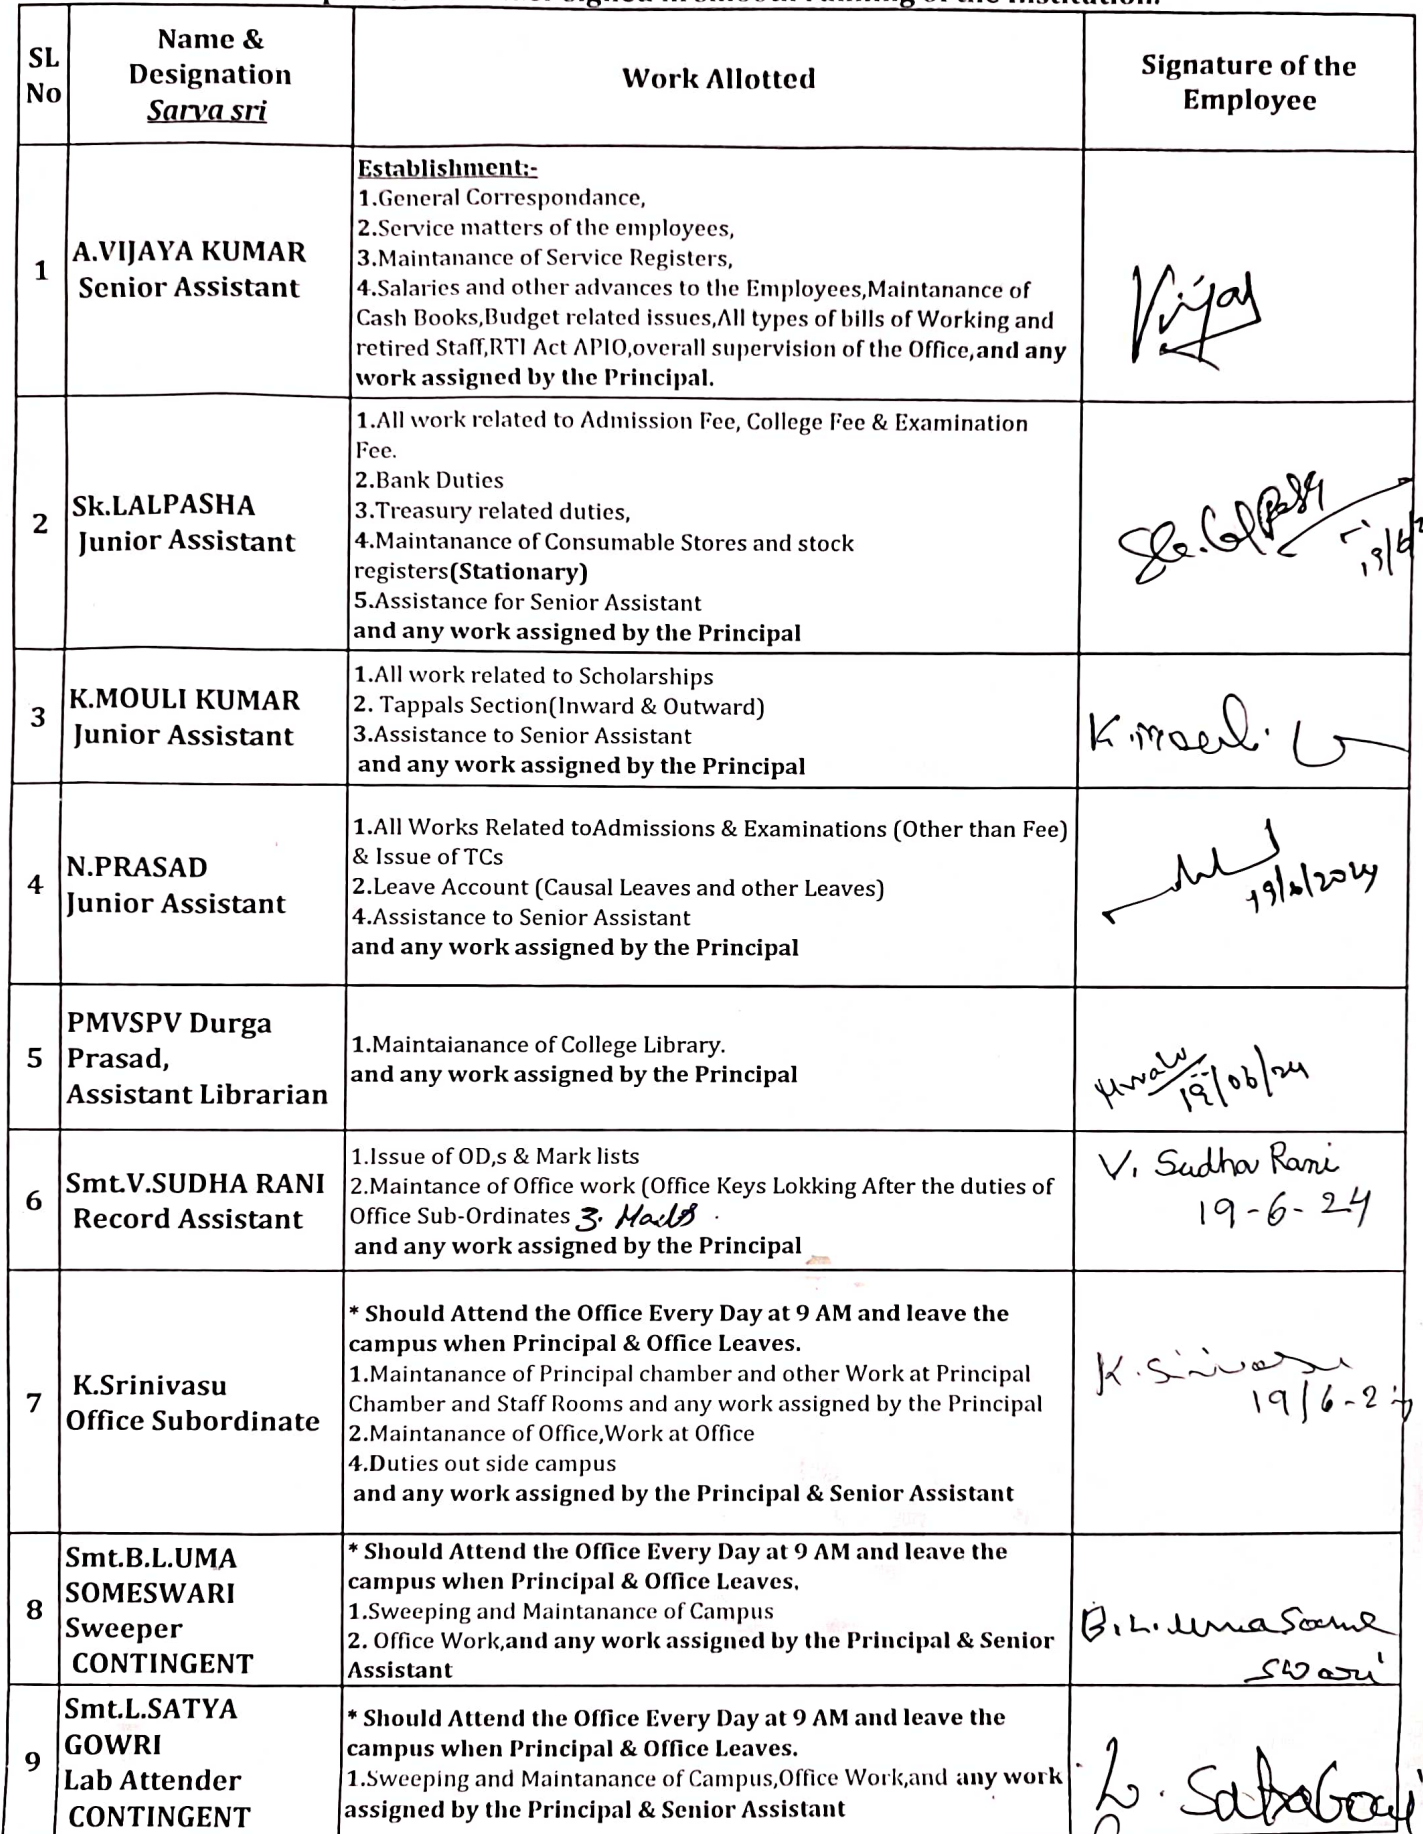 SL
No
Name &
Designation
Sarva sri
Work Allotted
Signature of the
Employee
1
A.VIJAYA KUMAR
Senior Assistant
Establishment:-
1.General Correspondance,
2.Service matters of the employees,
3.Maintanance of Service Registers,
4.Salaries and other advances to the Employees,Maintanance of
Cash Books,Budget related issues,All types of bills of Working and
retired Staff,RTI Act APIO,overall supervision of the Office,and any
work assigned by the Principal.
Vijay
2
Sk.LALPASHA
Junior Assistant
1.All work related to Admission Fee, College Fee & Examination
Fee.
2.Bank Duties
3.Treasury related duties,
4.Maintanance of Consumable Stores and stock
registers(Stationary)
5.Assistance for Senior Assistant
and any work assigned by the Principal
3
K.MOULI KUMAR
Junior Assistant
1.All work related to Scholarships
2. Tappals Section(Inward & Outward)
3.Assistance to Senior Assistant
and any work assigned by the Principal
4
N.PRASAD
Junior Assistant
1.All Works Related toAdmissions & Examinations (Other than Fee)
& Issue of TCs
2.Leave Account (Causal Leaves and other Leaves)
4.Assistance to Senior Assistant
and any work assigned by the Principal
19/6/2024
5
PMVSPV Durga
Prasad,
Assistant Librarian
1.Maintaianance of College Library.
and any work assigned by the Principal
19/06/24
6
Smt.V.SUDHA RANI
Record Assistant
1.Issue of OD,s & Mark lists
2.Maintance of Office work (Office Keys Lokking After the duties of
Office Sub-Ordinates 3.
and any work assigned by the Principal
V. Sudha Rani
19-6-24
7
K.Srinivasu
Office Subordinate
* Should Attend the Office Every Day at 9 AM and leave the
campus when Principal & Office Leaves.
1.Maintanance of Principal chamber and other Work at Principal
Chamber and Staff Rooms and any work assigned by the Principal
2.Maintanance of Office,Work at Office
4.Duties out side campus
and any work assigned by the Principal & Senior Assistant
K. Srinivasu
19/6-24
8
Smt.B.L.UMA
SOMESWARI
Sweeper
CONTINGENT
* Should Attend the Office Every Day at 9 AM and leave the
campus when Principal & Office Leaves.
1.Sweeping and Maintanance of Campus
2. Office Work,and any work assigned by the Principal & Senior
Assistant
B.L.Uma Some
swari
9
Smt.L.SATYA
GOWRI
Lab Attender
CONTINGENT
* Should Attend the Office Every Day at 9 AM and leave the
campus when Principal & Office Leaves.
1.Sweeping and Maintanance of Campus,Office Work,and any work
assigned by the Principal & Senior Assistant